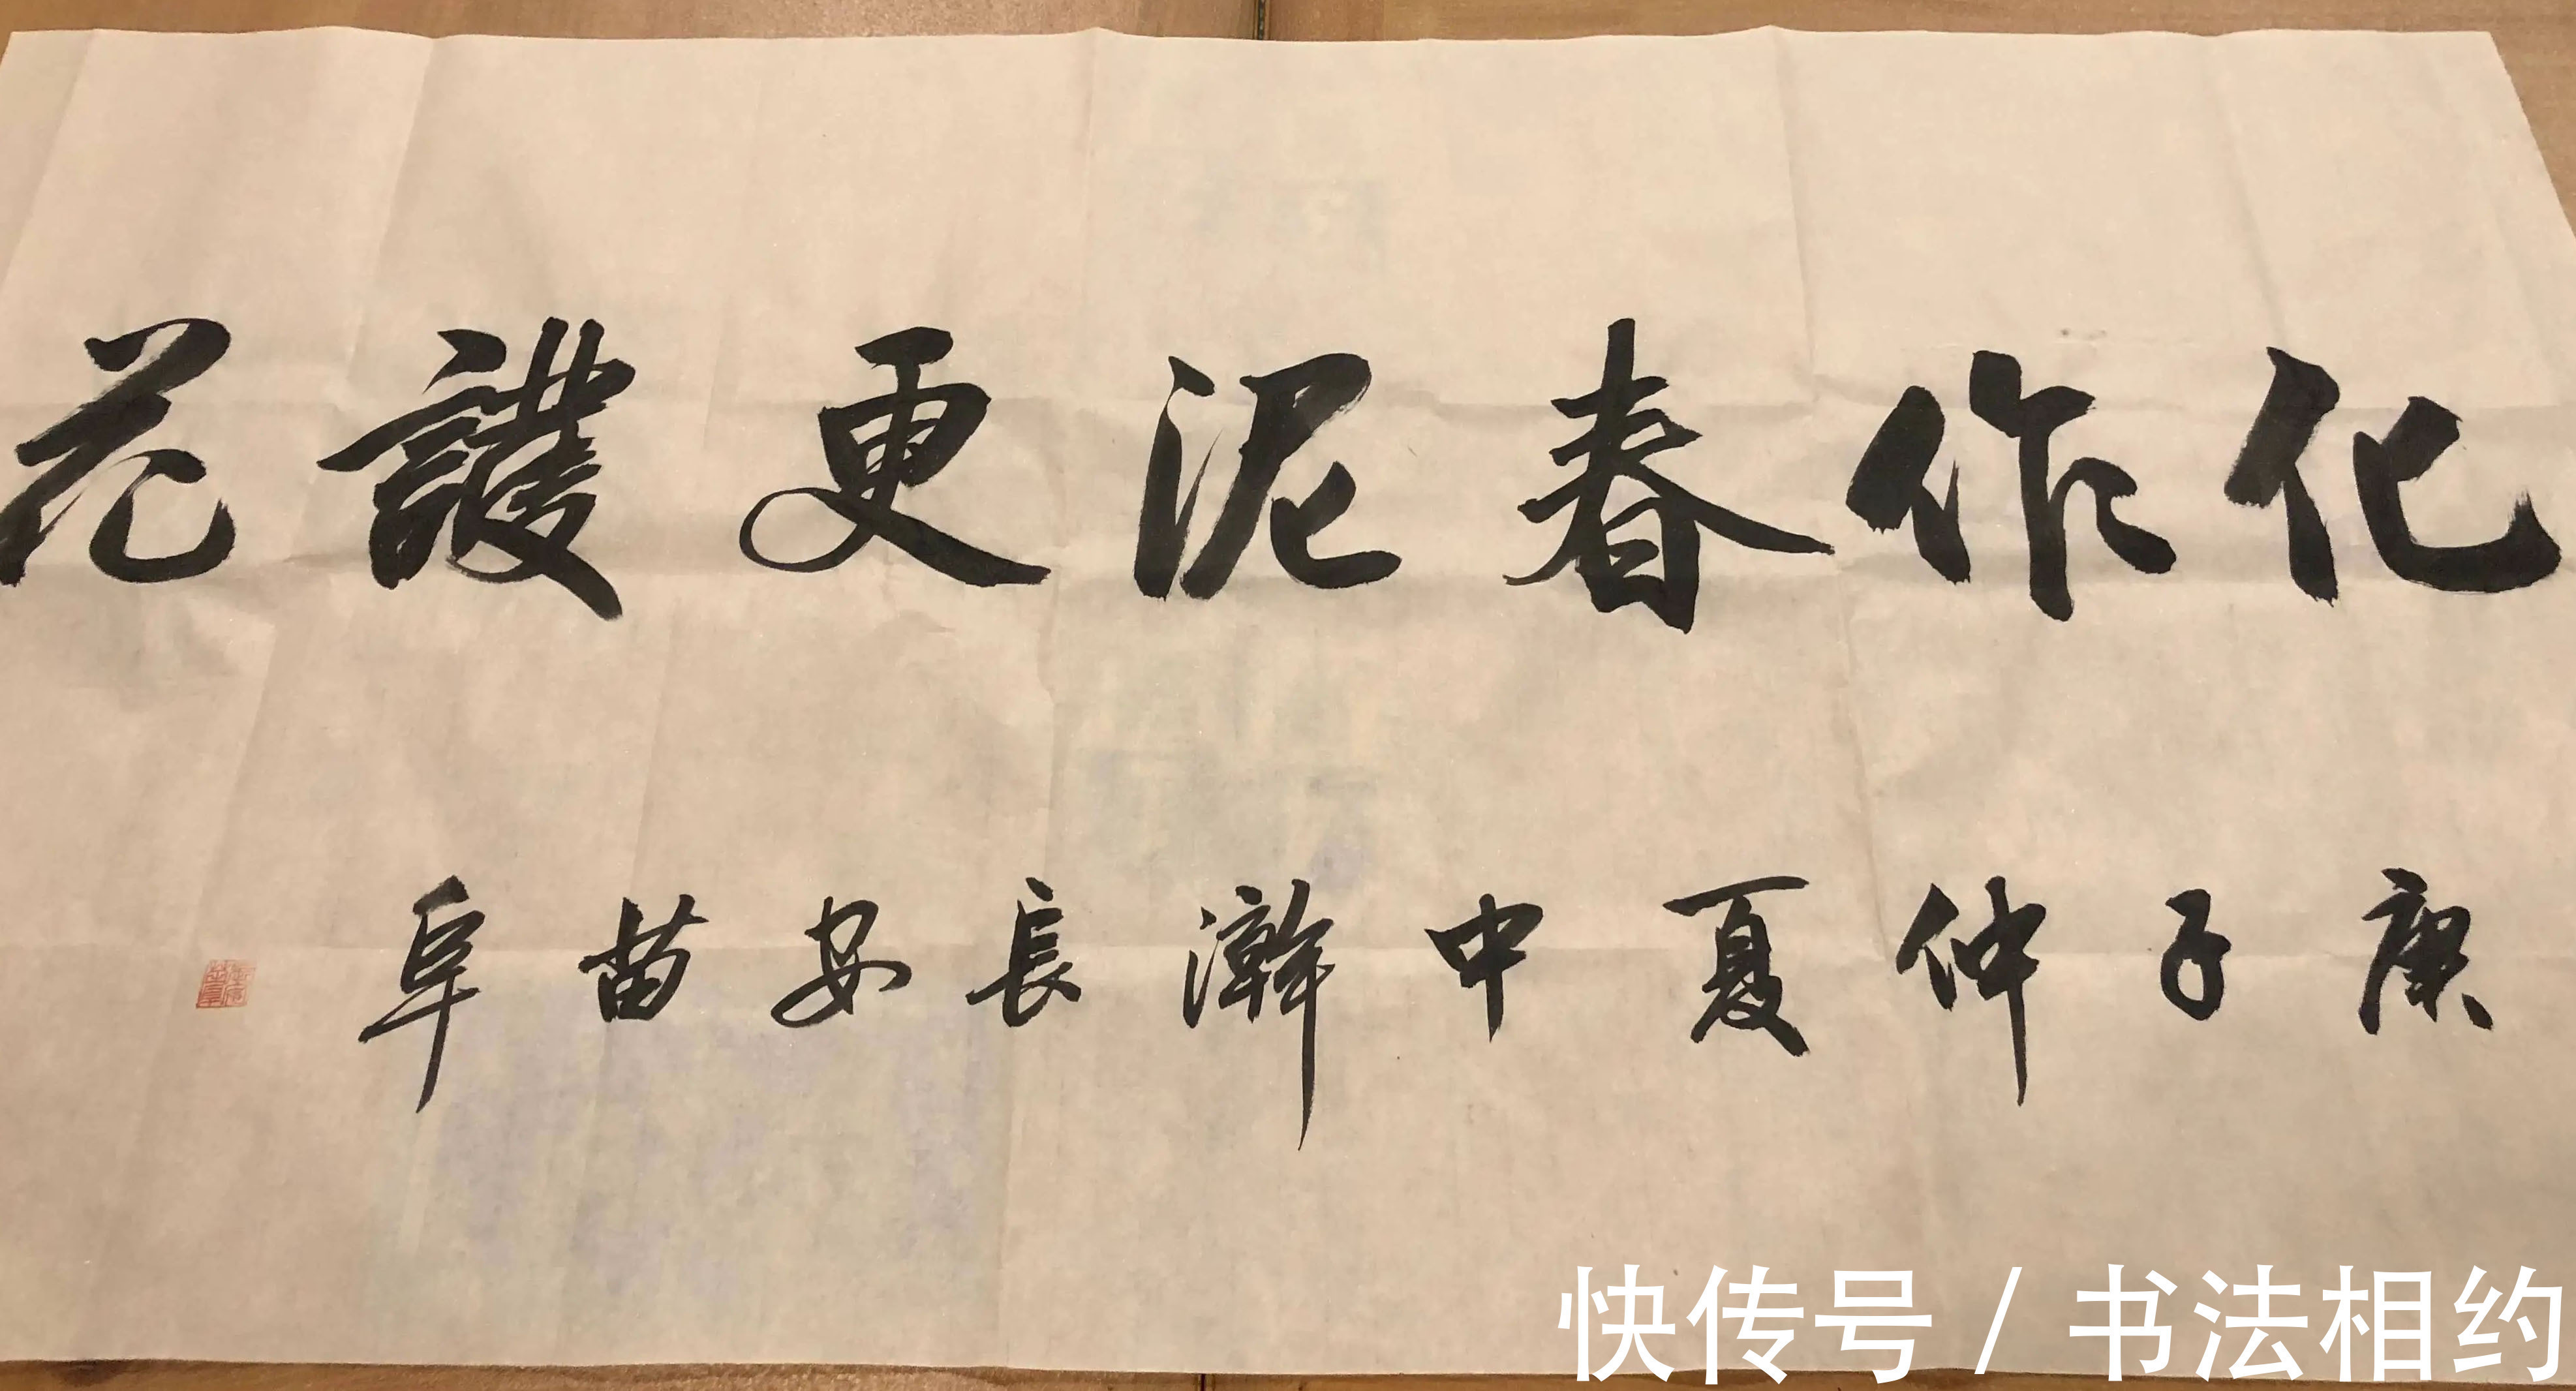 化作春泥更護花
庚子仲夏中瀚長安苗阜
快传号 / 书法相约